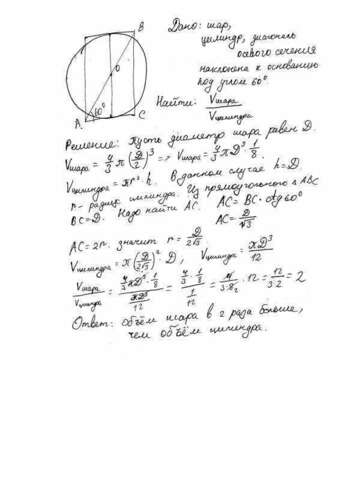 B
O
60°
A
C
Дано: шар,
цилиндр, диагональ
осевого сечения
наклонена к основанию
под углом 60°.
Найти: Vшара / Vцилиндра
Решение: Пусть диаметр шара равен D.
Vшара = 4/3 π (D/2)³ => Vшара = 4/3 πD³ · 1/8.
Vцилиндра = πr² · h. В данном случае h = D
r - радиус цилиндра. Из прямоугольного ΔABC
BC = D. Надо найти AC. AC = BC · ctg 60°
AC = D/√3
AC = 2r. значит r = D/2√3
Vцилиндра = π(D/2√3)² · D, Vцилиндра = πD³/12
Vшара / Vцилиндра = (4/3 πD³ · 1/8) / (πD³/12) = (4/3 · 1/8) / (1/12) = 4/(3·8₂) · 12 = 12/(3·2) = 2
Ответ: объём шара в 2 раза больше,
чем объём цилиндра.